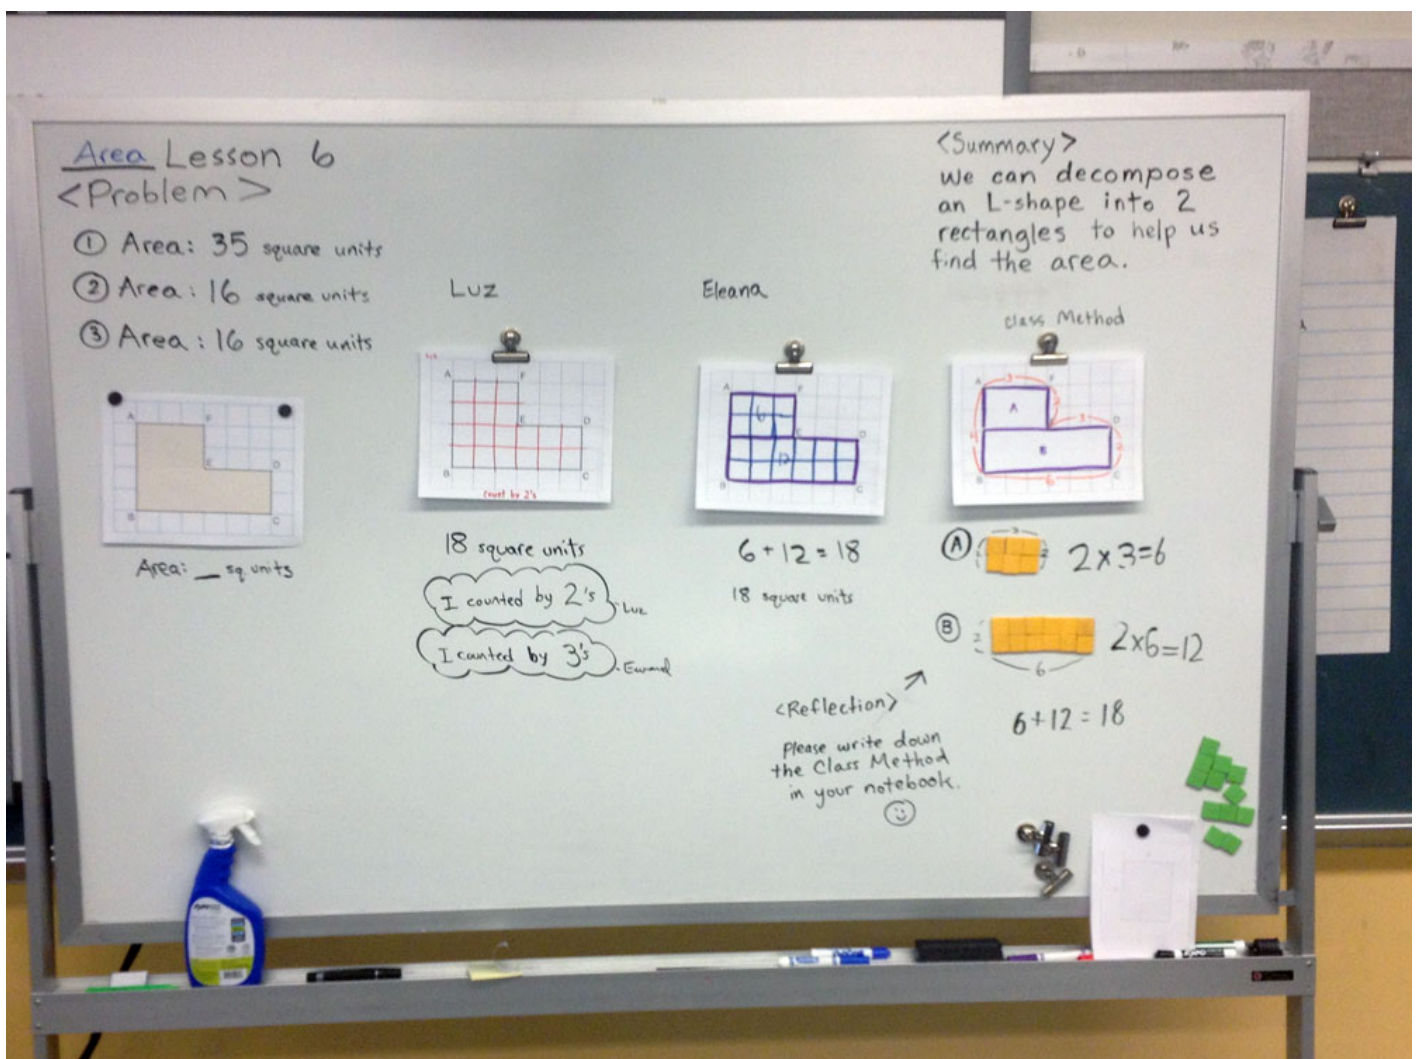 Area Lesson 6
<Problem>
① Area: 35 square units
② Area: 16 square units
③ Area: 16 square units
A F
E D
B C
Area: __ sq units
Luz
A F
E D
B C
count by 2's
18 square units
I counted by 2's
- Luz
I counted by 3's
Eleana
A F
6
D
12
B C
6 + 12 = 18
18 square units
<Summary>
We can decompose
an L-shape into 2
rectangles to help us
find the area.
class Method
A 3 F
A 2
3 D
4 B 2
B C
6
Ⓐ 3
2 2 × 3 = 6
Ⓑ
2 2×6=12
6
6+12 = 18
<Reflection>
Please write down
the Class Method
in your notebook.